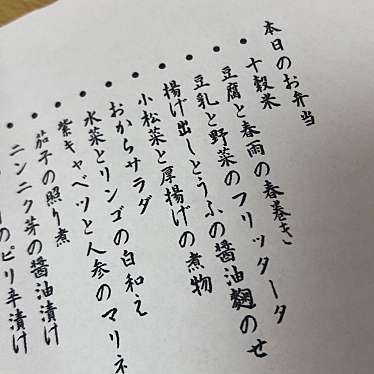 本日のお弁当
・十穀米
・豆腐と春雨の春巻き
・豆乳と野菜のフリッタータ
・揚げ出しとうふの醤油麹のせ
・小松菜と厚揚げの煮物
・おからサラダ
・水菜とリンゴの白和え
・紫キャベツと人参のマリネ
・茄子の照り煮
・ニンニク芽の醤油漬け
のピリ辛漬け